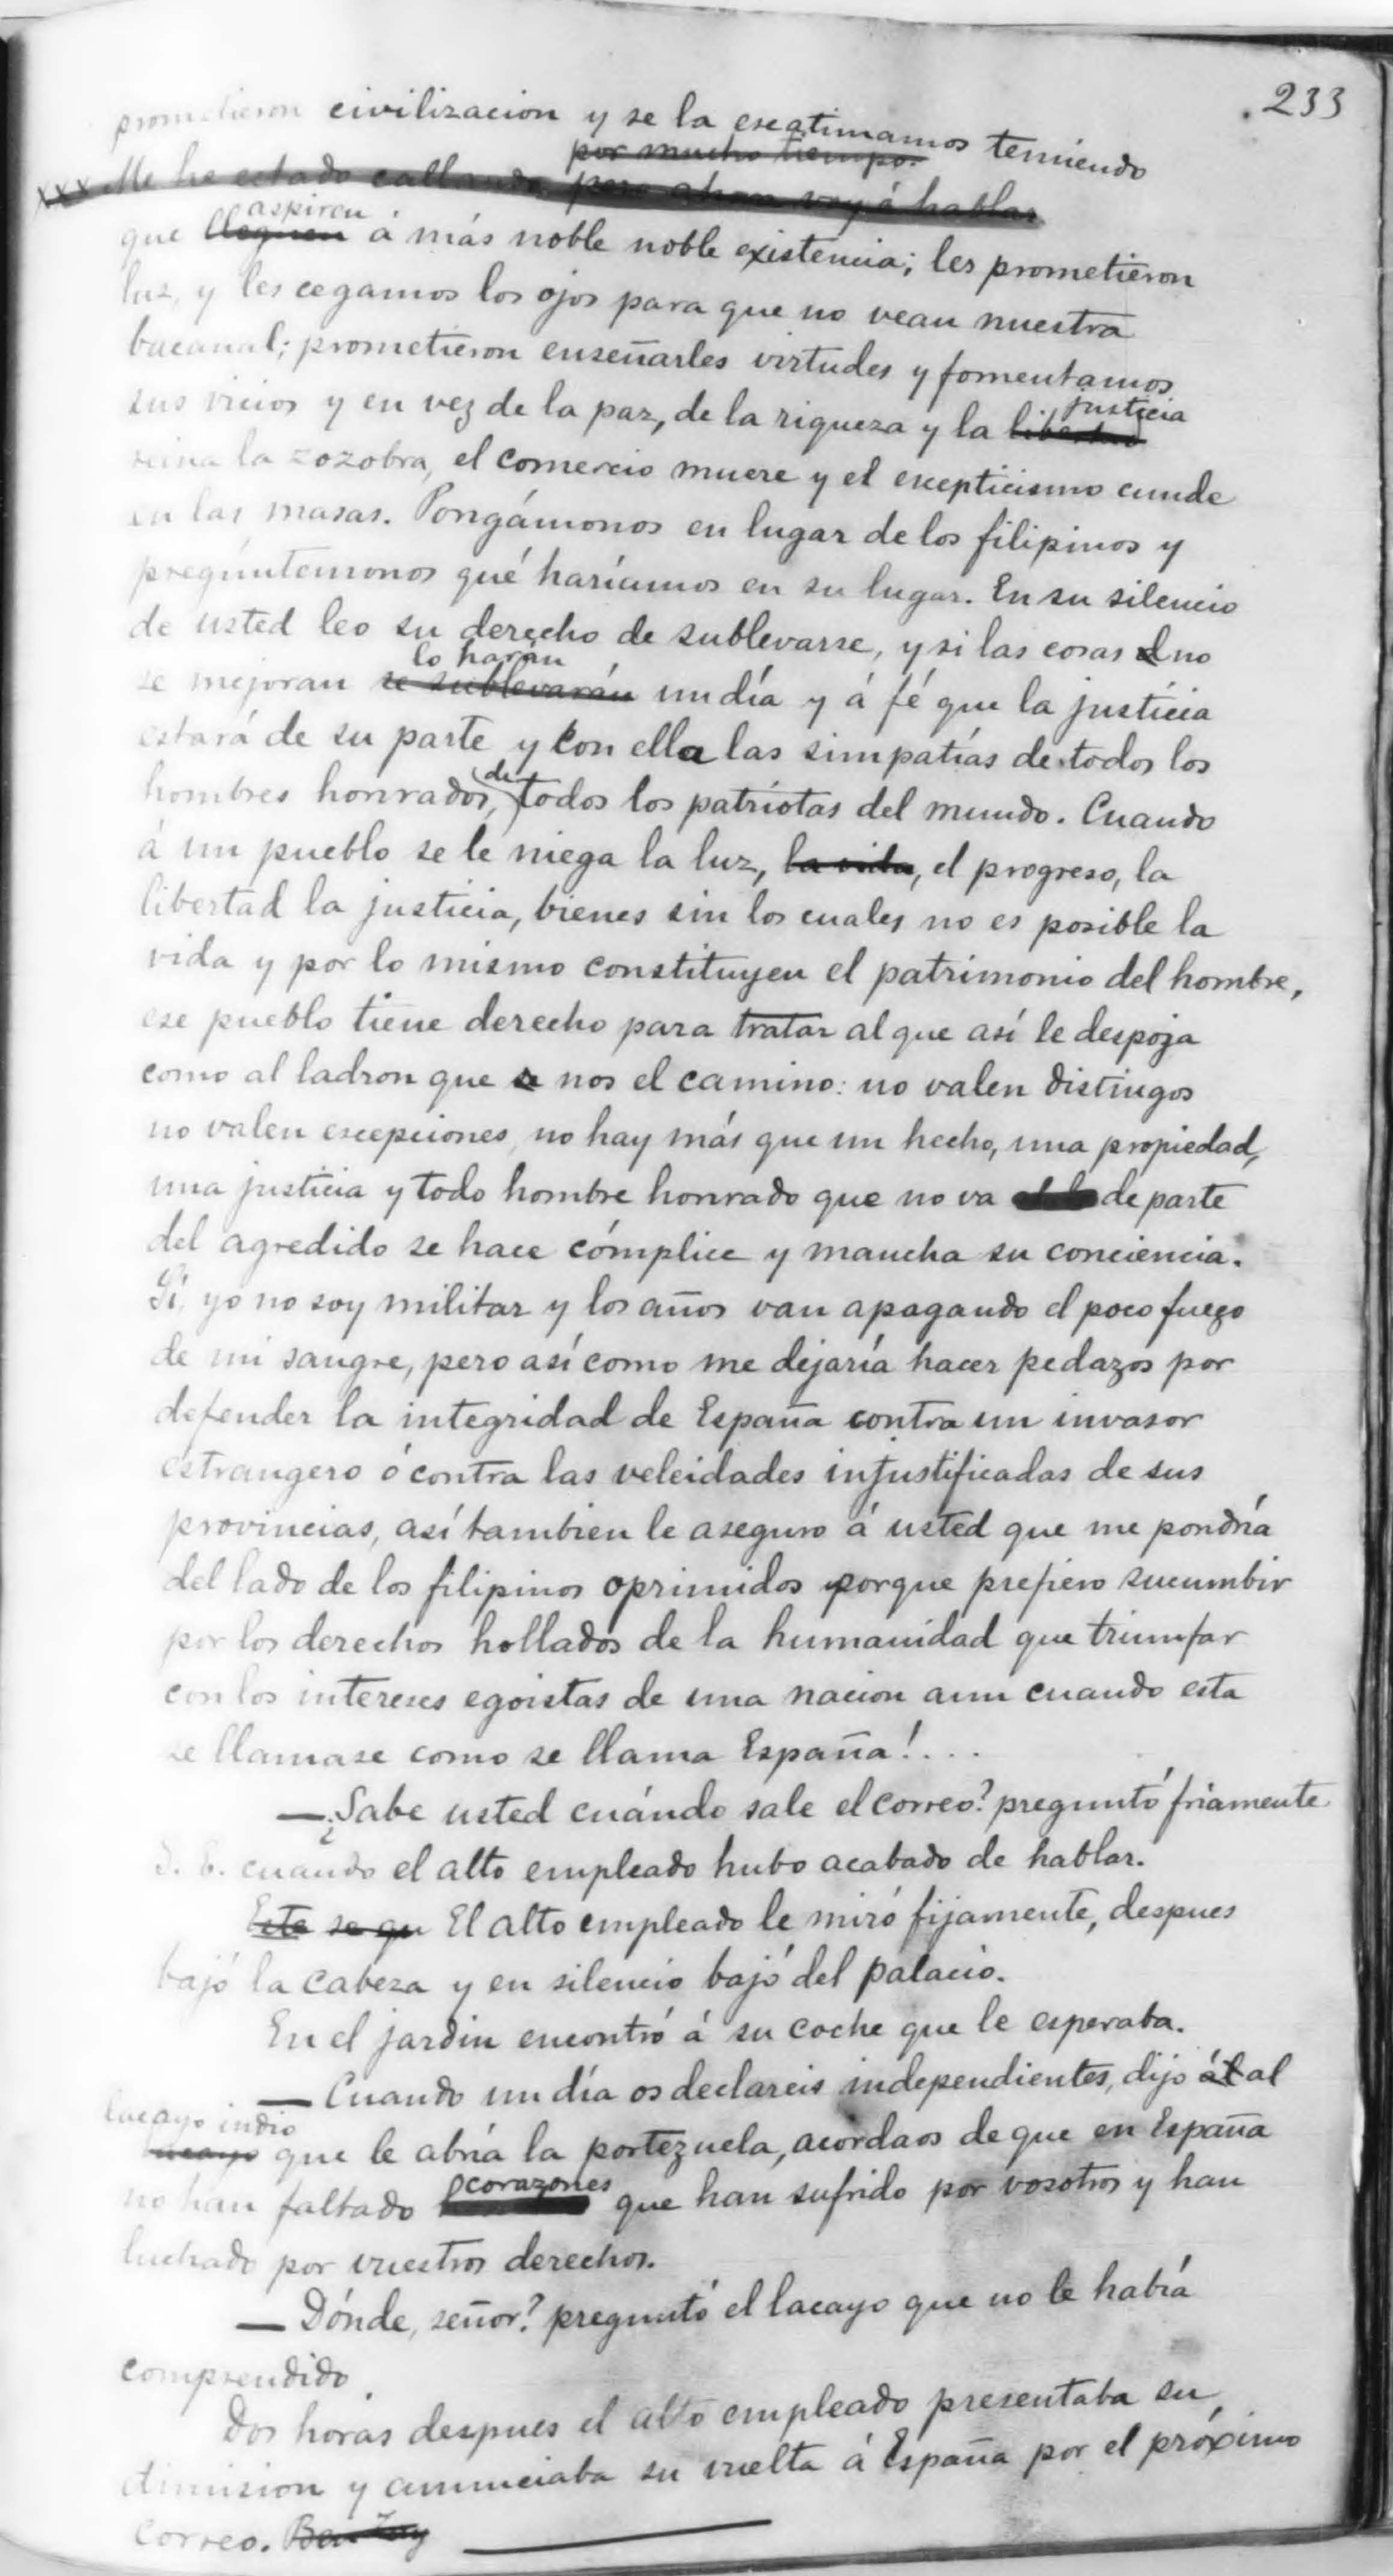 233
prometieron civilizacion y se la escatimamos temiendo
por mucho tiempo.
xxx Me he estado callando, pero ahora voy á hablar
aspiren
que lleguen á más noble noble existencia; les prometieron
luz, y les cegamos los ojos para que no vean nuestra
bacanal; prometieron enseñarles virtudes y fomentamos
justicia
sus vicios y en vez de la paz, de la riqueza y la libertad
reina la zozobra, el comercio muere y el escepticismo cunde
en las masas. Pongámonos en lugar de los filipinos y
preguntémonos qué haríamos en su lugar. En su silencio
de usted leo su derecho de sublevarse, y si las cosas no
lo harán
se mejoran se sublevarán un día y á fé que la justicia
estará de su parte y con ella las simpatías de todos los
de
hombres honrados, todos los patriotas del mundo. Cuando
á un pueblo se le niega la luz, la vida, el progreso, la
libertad la justicia, bienes sin los cuales no es posible la
vida y por lo mismo constituyen el patrimonio del hombre,
ese pueblo tiene derecho para tratar al que así le despoja
como al ladron que se nos el camino: no valen distingos
no valen escepciones, no hay más que un hecho, una propiedad,
una justicia y todo hombre honrado que no va de parte
del agredido se hace cómplice y mancha su conciencia.
Si, yo no soy militar y los años van apagando el poco fuego
de mi sangre, pero así como me dejaría hacer pedazos por
defender la integridad de España contra un invasor
estrangero ó contra las veleidades injustificadas de sus
provincias, así tambien le aseguro á usted que me pondría
del lado de los filipinos oprimidos porque prefiero sucumbir
por los derechos hollados de la humanidad que triunfar
con los intereses egoistas de una nacion aun cuando esta
se llamase como se llama España!...
— ¿Sabe usted cuándo sale el correo? preguntó friamente
S. E. cuando el alto empleado hubo acabado de hablar.
Este se qu El alto empleado le miró fijamente, despues
bajó la cabeza y en silencio bajó del palacio.
En el jardin encontró á su coche que le esperaba.
— Cuando un día os declareis independientes, dijo ál al
lacayo indio
lacayo que le abría la portezuela, acordaos de que en España
corazones
no han faltado que han sufrido por vosotros y han
luchado por vuestros derechos.
— Dónde, señor? preguntó el lacayo que no le había
comprendido.
Dos horas despues el alto empleado presentaba su
dimision y anunciaba su vuelta á España por el próximo
correo. Ben Zay